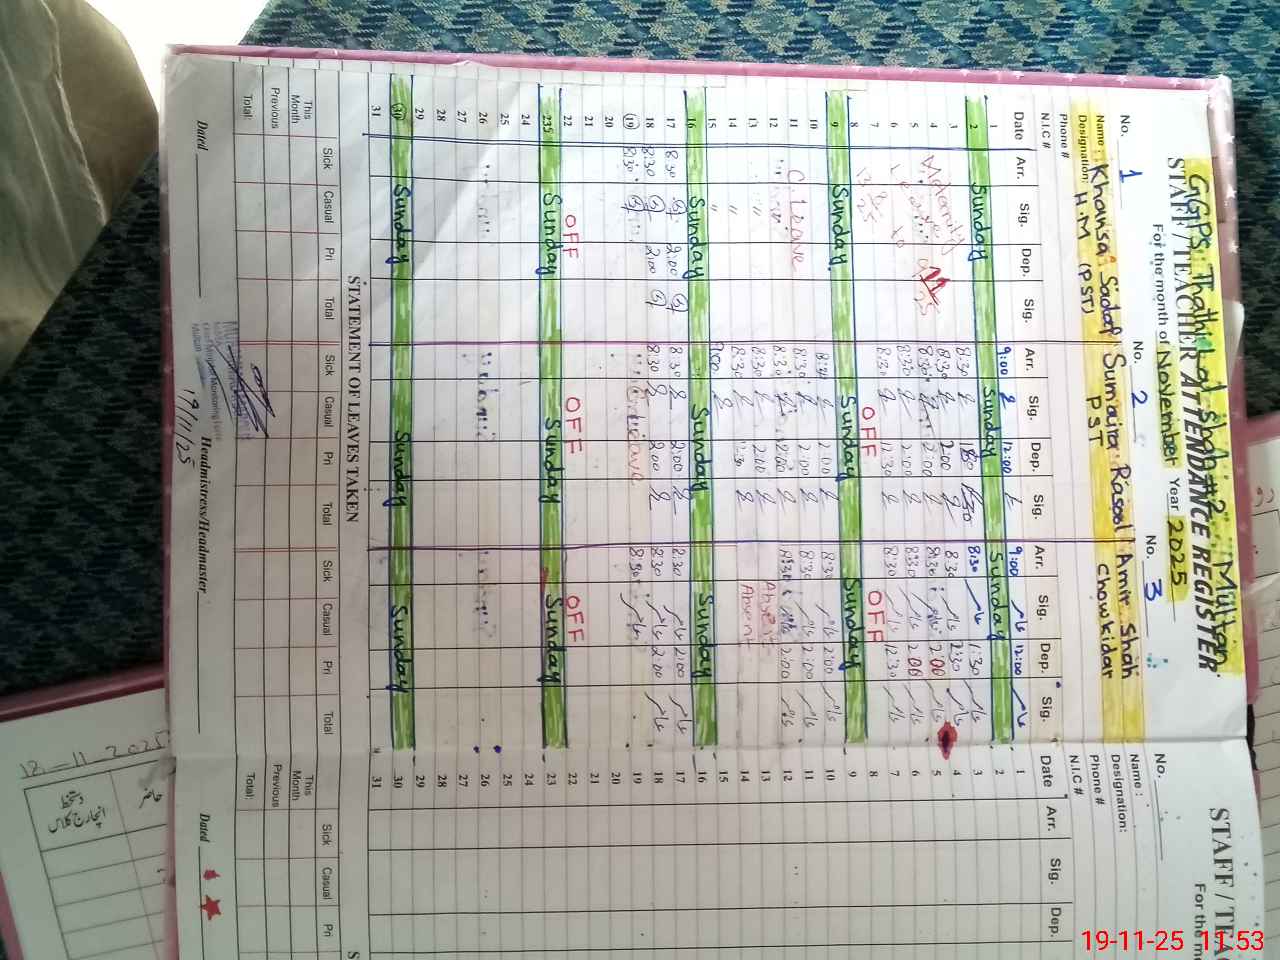 GGPS Thathi Lal Shah #2 Multan
STAFF / TEACHER ATTENDANCE REGISTER
For the month of November Year 2025
No. 1 No. 2 No. 3
Name: Khansa Sadaf Sumaira Rasool Amir Shah
Designation: H.M (PST) PST Chowkidar
Phone #
N.I.C #
Date Arr. Sig. Dep. Sig. Arr. Sig. Dep. Sig. Arr. Sig. Dep. Sig.
1 9:00 12:00 9:00 12:00
2 Sunday Sunday Sunday
3 8:30 8:30 1:30
4 Maternity 8:30 2:00 8:30
5 Leave 8:30 2:00 8:30 2:00
6 to 8:30 2:00 8:30 2:00
7 8:30 12:30 8:30 12:30
8 OFF OFF
9 Sunday Sunday Sunday
10 8:30 2:00 8:30 2:00
11 C. Leave 8:30 2:00 8:30 2:00
12 8:30 2:00 8:30 2:00
13 " 8:30 2:00 Absent
14 " 8:30 Absent
15 " 9:00
16 Sunday Sunday Sunday
17 8:30 2:00 8:30 2:00 8:30 2:00
18 8:30 2:00 8:30 2:00 8:30 2:00
19 8:30 C. Leave 8:30
20
21
22 OFF OFF OFF
23 Sunday Sunday Sunday
24
25
26
27
28
29
30 Sunday Sunday Sunday
31
STATEMENT OF LEAVES TAKEN
Sick Casual Pri Total Sick Casual Pri Total Sick Casual Pri Total
This Month
Previous
Total:
Dated Headmistress/Headmaster
19/11/25
STAFF / TEAC
For the mo
No.
Name:
Designation:
Phone #
N.I.C #
Date Arr. Sig. Dep.
1
2
3
4
5
6
7
8
9
10
11
12
13
14
15
16
17
18
19
20
21
22
23
24
25
26
27
28
29
30
31
S
Sick Casual Pri
This Month
Previous
Total:
Dated
18-11-2025
حاضر
دستخط
انچارج کلاس
19-11-25 11:53